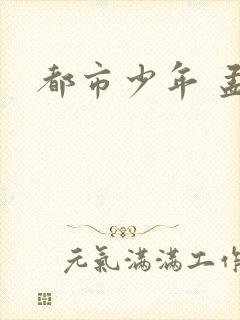 都市少年 孟
元氣滿滿工作